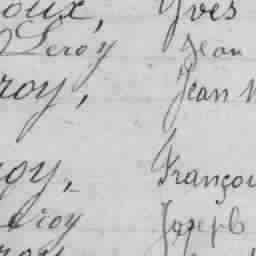 oux, Yves
Leroy Jean
roy, Jean
oy, Françoi
Leroy Joseph
roy